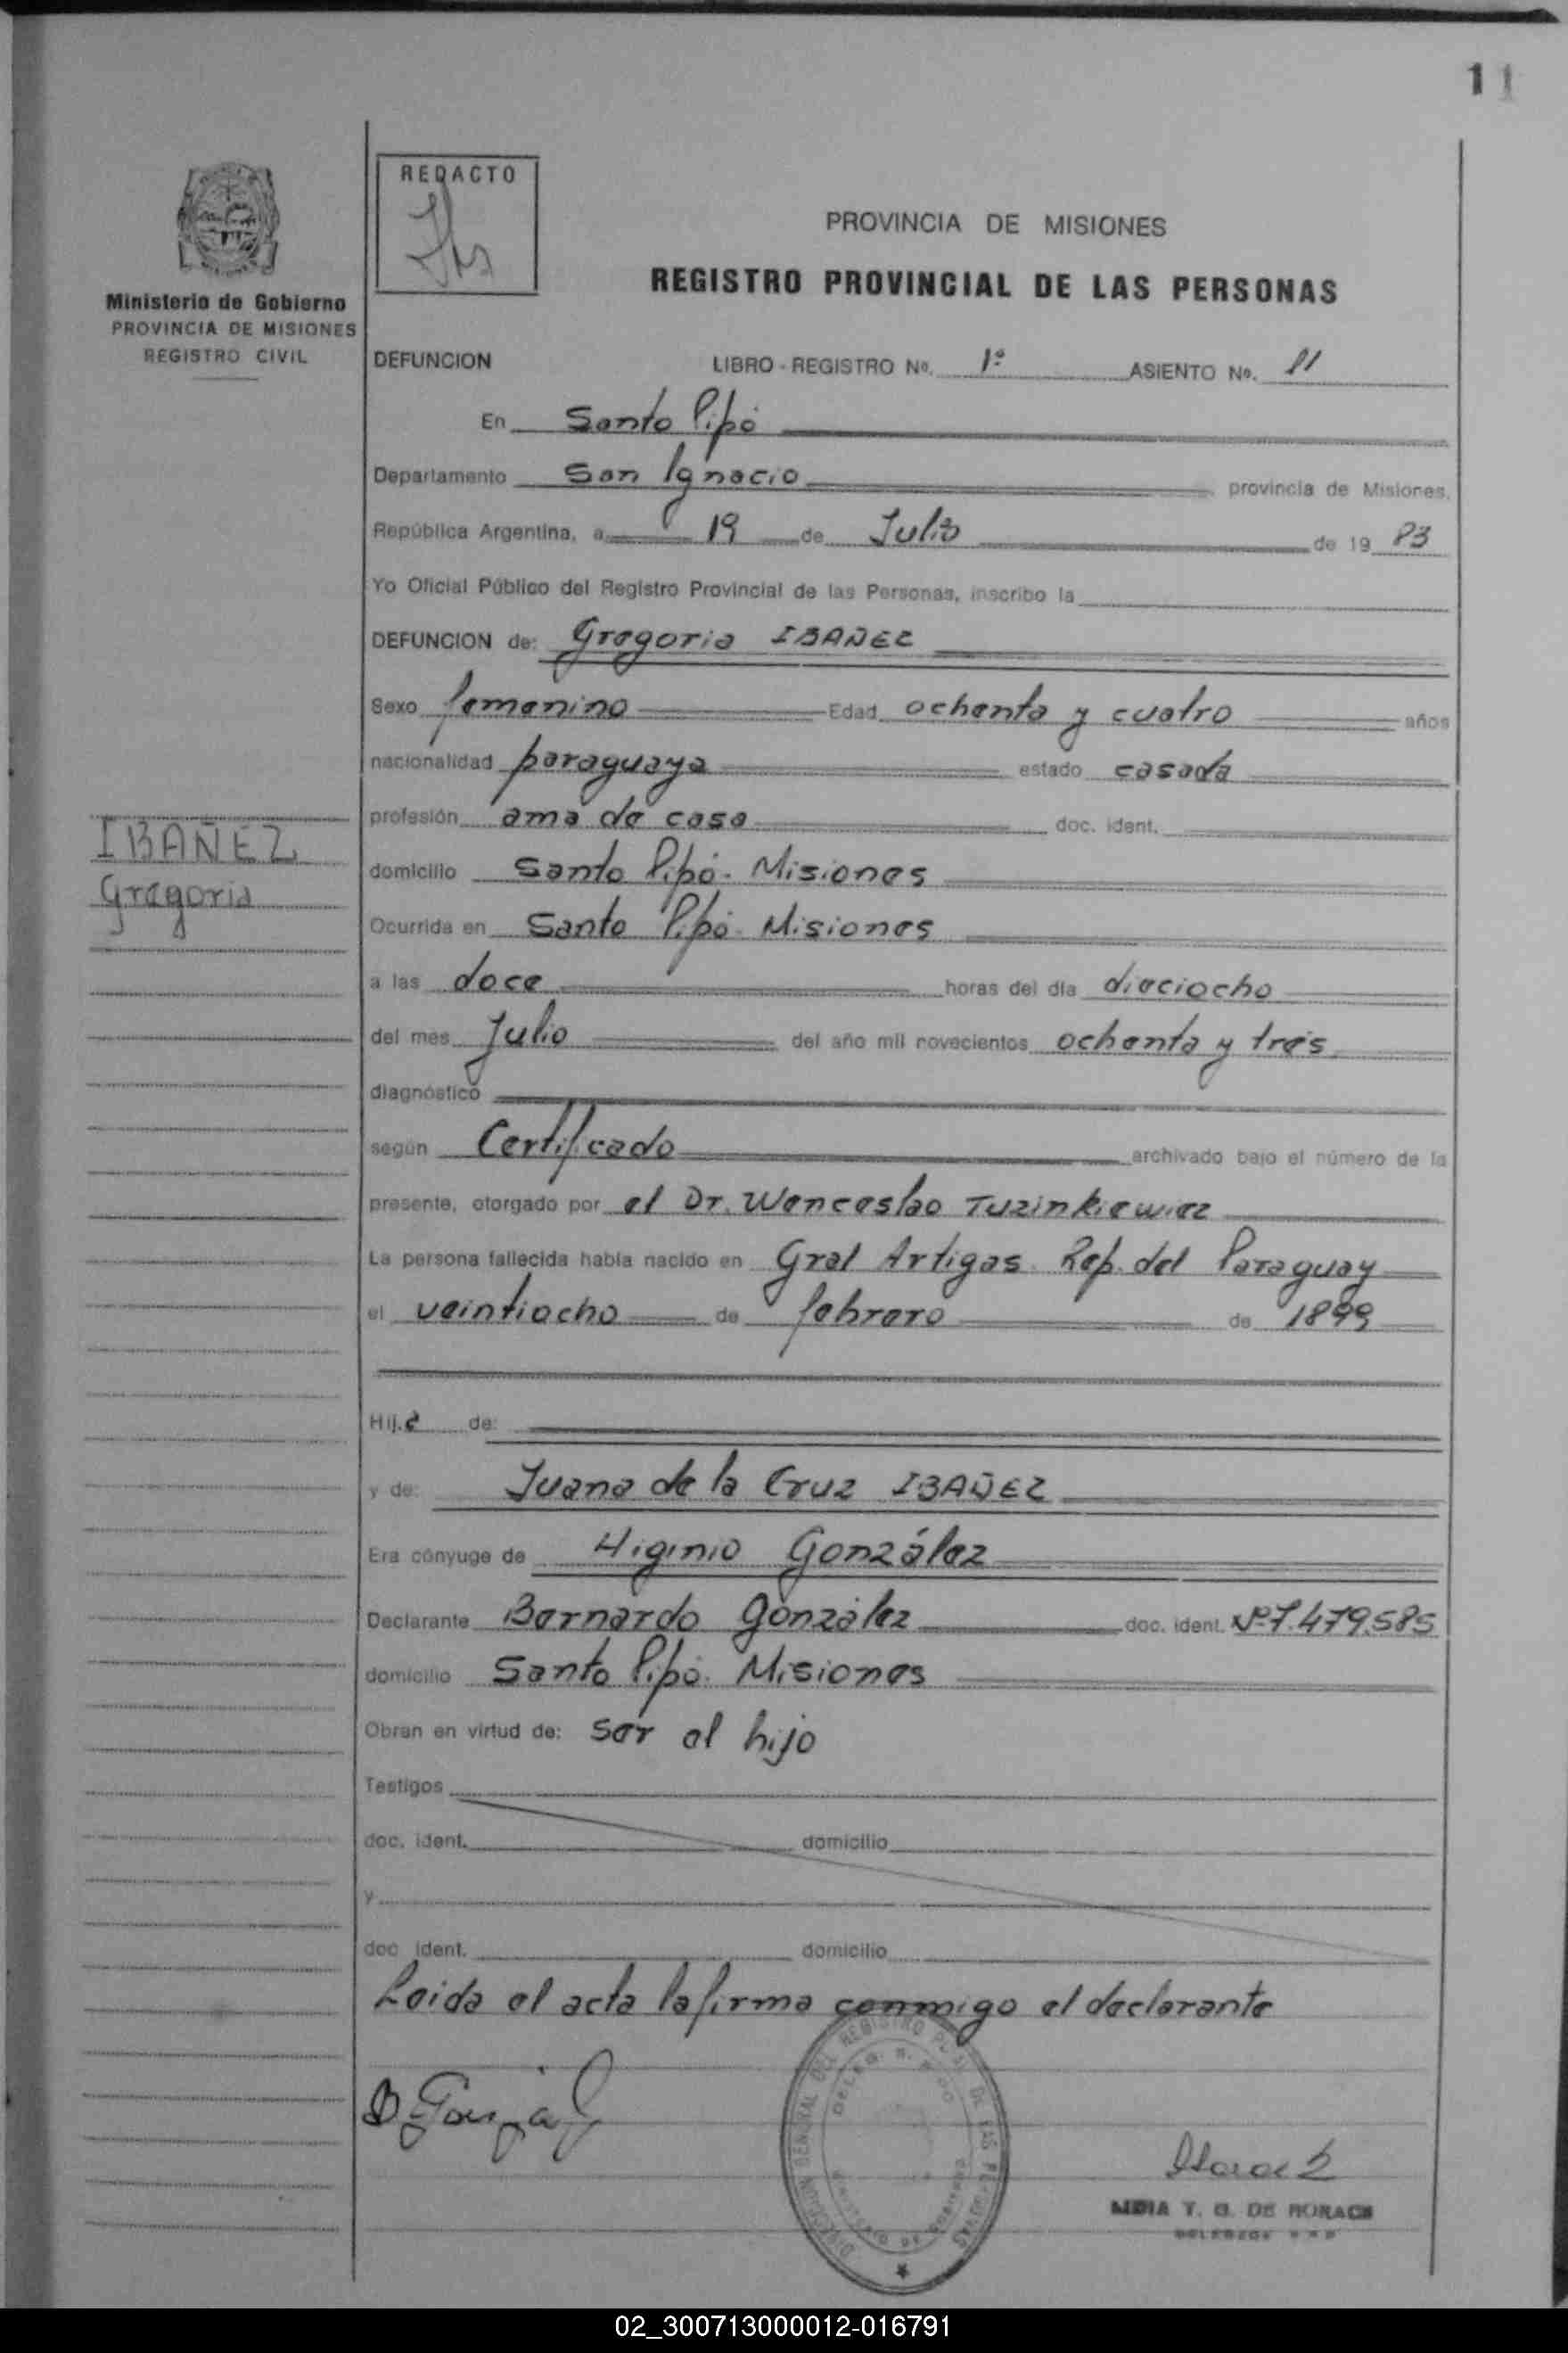 11
REDACTO
PROVINCIA DE MISIONES
REGISTRO PROVINCIAL DE LAS PERSONAS
Ministerio de Gobierno
PROVINCIA DE MISIONES
REGISTRO CIVIL
DEFUNCION LIBRO - REGISTRO No. 1º ASIENTO No. 11
En Santo Pipó
Departamento San Ignacio provincia de Misiones,
República Argentina, a 19 de Julio de 19 83
Yo Oficial Público del Registro Provincial de las Personas, inscribo la
DEFUNCION de: Gregoria IBAÑEZ
Sexo femenino Edad ochenta y cuatro años
nacionalidad paraguaya estado casada
profesión ama de casa doc. ident.
IBAÑEZ
Gregoria
domicilio Santo Pipó - Misiones
Ocurrida en Santo Pipó - Misiones
a las doce horas del día dieciocho
del mes Julio del año mil novecientos ochenta y tres
diagnóstico
según Certificado archivado bajo el número de la
presente, otorgado por el Dr. Wenceslao Tuzinkiewicz
La persona fallecida había nacido en Gral Artigas Rep. del Paraguay
el veintiocho de febrero de 1899
Hij.a de:
y de: Juana de la Cruz IBAÑEZ
Era cónyuge de Higinio González
Declarante Bernardo González doc. ident. Nº 7.479.585
domicilio Santo Pipó. Misiones
Obran en virtud de: ser el hijo
Testigos
doc. ident. domicilio
y
doc. ident. domicilio
Leida el acta la firma conmigo el declarante
B. González
DIRECCION GENERAL DEL REGISTRO PCIAL DE LAS PERSONAS
Y. G. DE HORACK
02_300713000012-016791